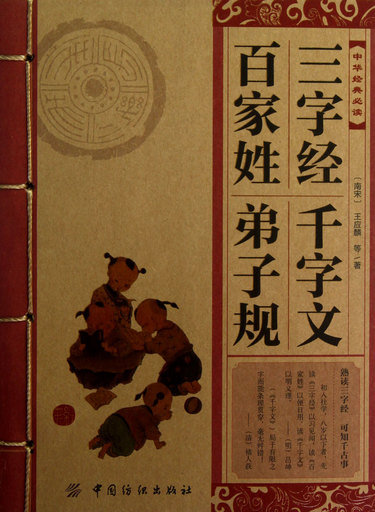 《中华经典必读》
三字经
百家姓
千字文
弟子规
〔南宋〕王应麟 等/著
熟读三字经 可知千古事
初入社学，八岁以下者，先
读《三字经》以习见闻，读《百
家姓》以便日用，读《千字文》
以明义理。
——（明）吕坤
（《千字文》）局于有限之
字而能条理贯穿，毫无舛错！
——（清）褚人获
中国纺织出版社